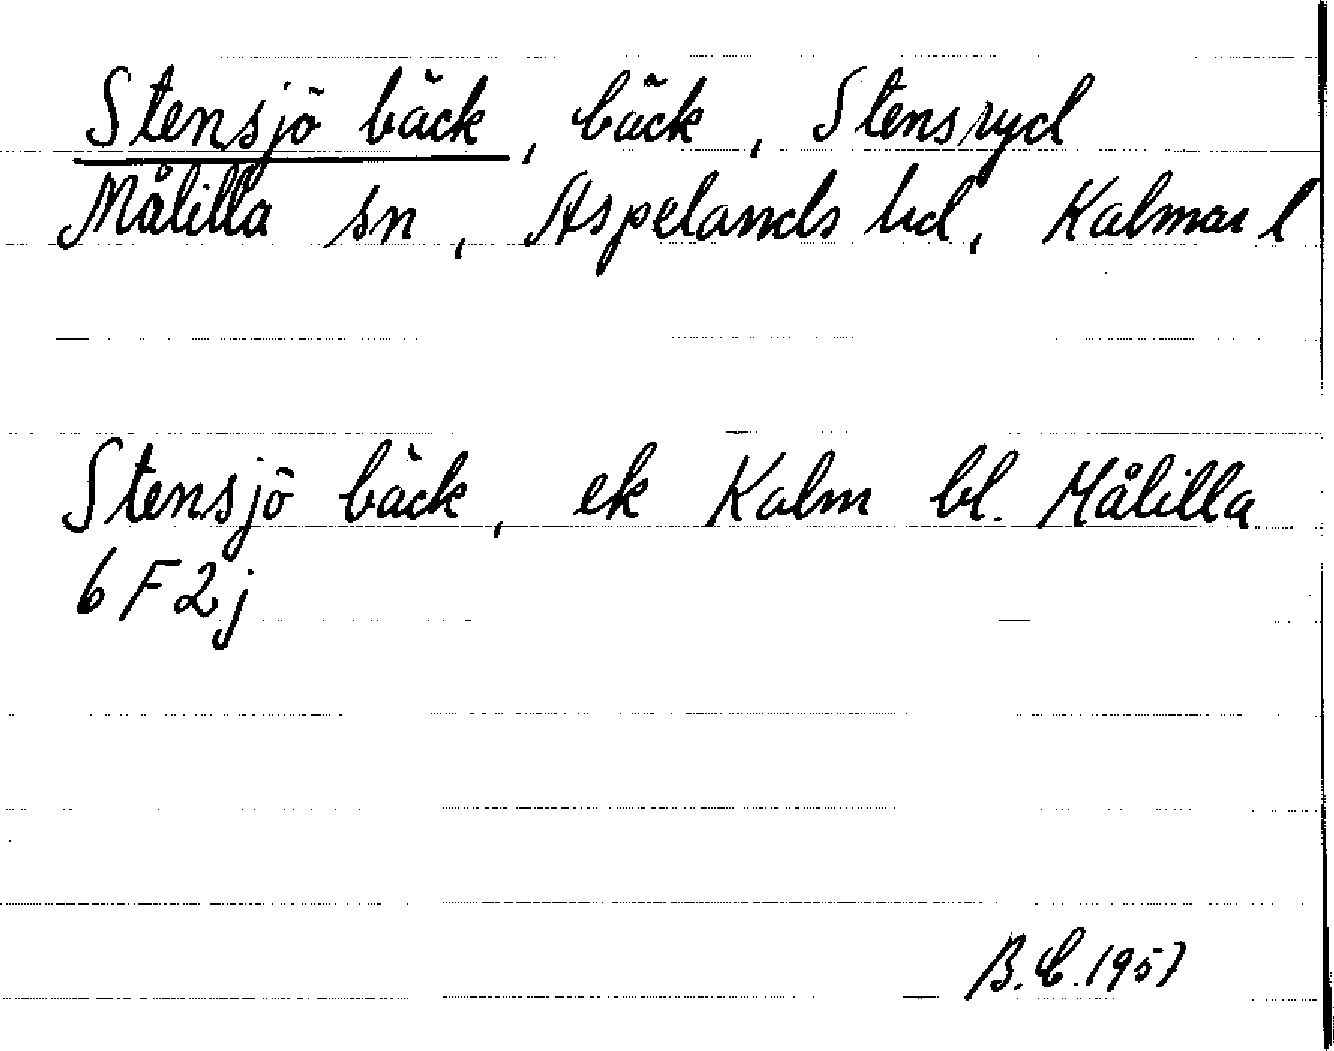 Stensjö bäck, bäck, Stensryd
Målilla sn, Aspelands hd, Kalmar l
Stensjö bäck, ek Kalm bl. Målilla
6 F 2 j
B.C. 1957